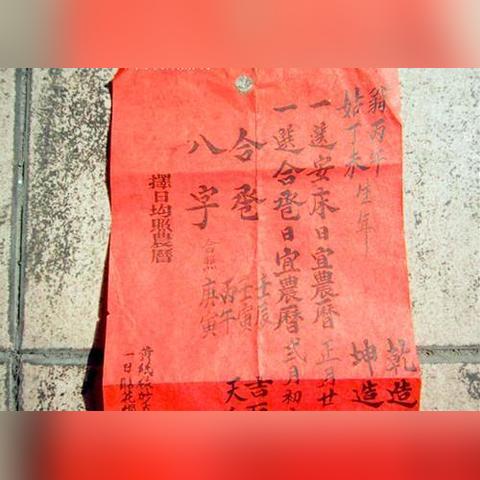 乾造
坤造
翁丙午
姑丁未生年
一選安床日宜農曆正月廿
一選合卺日宜農曆弍月初
合卺
八字
合照
壬辰
壬寅
丙午
庚寅
吉
天
擇日均照農曆
一日貼花